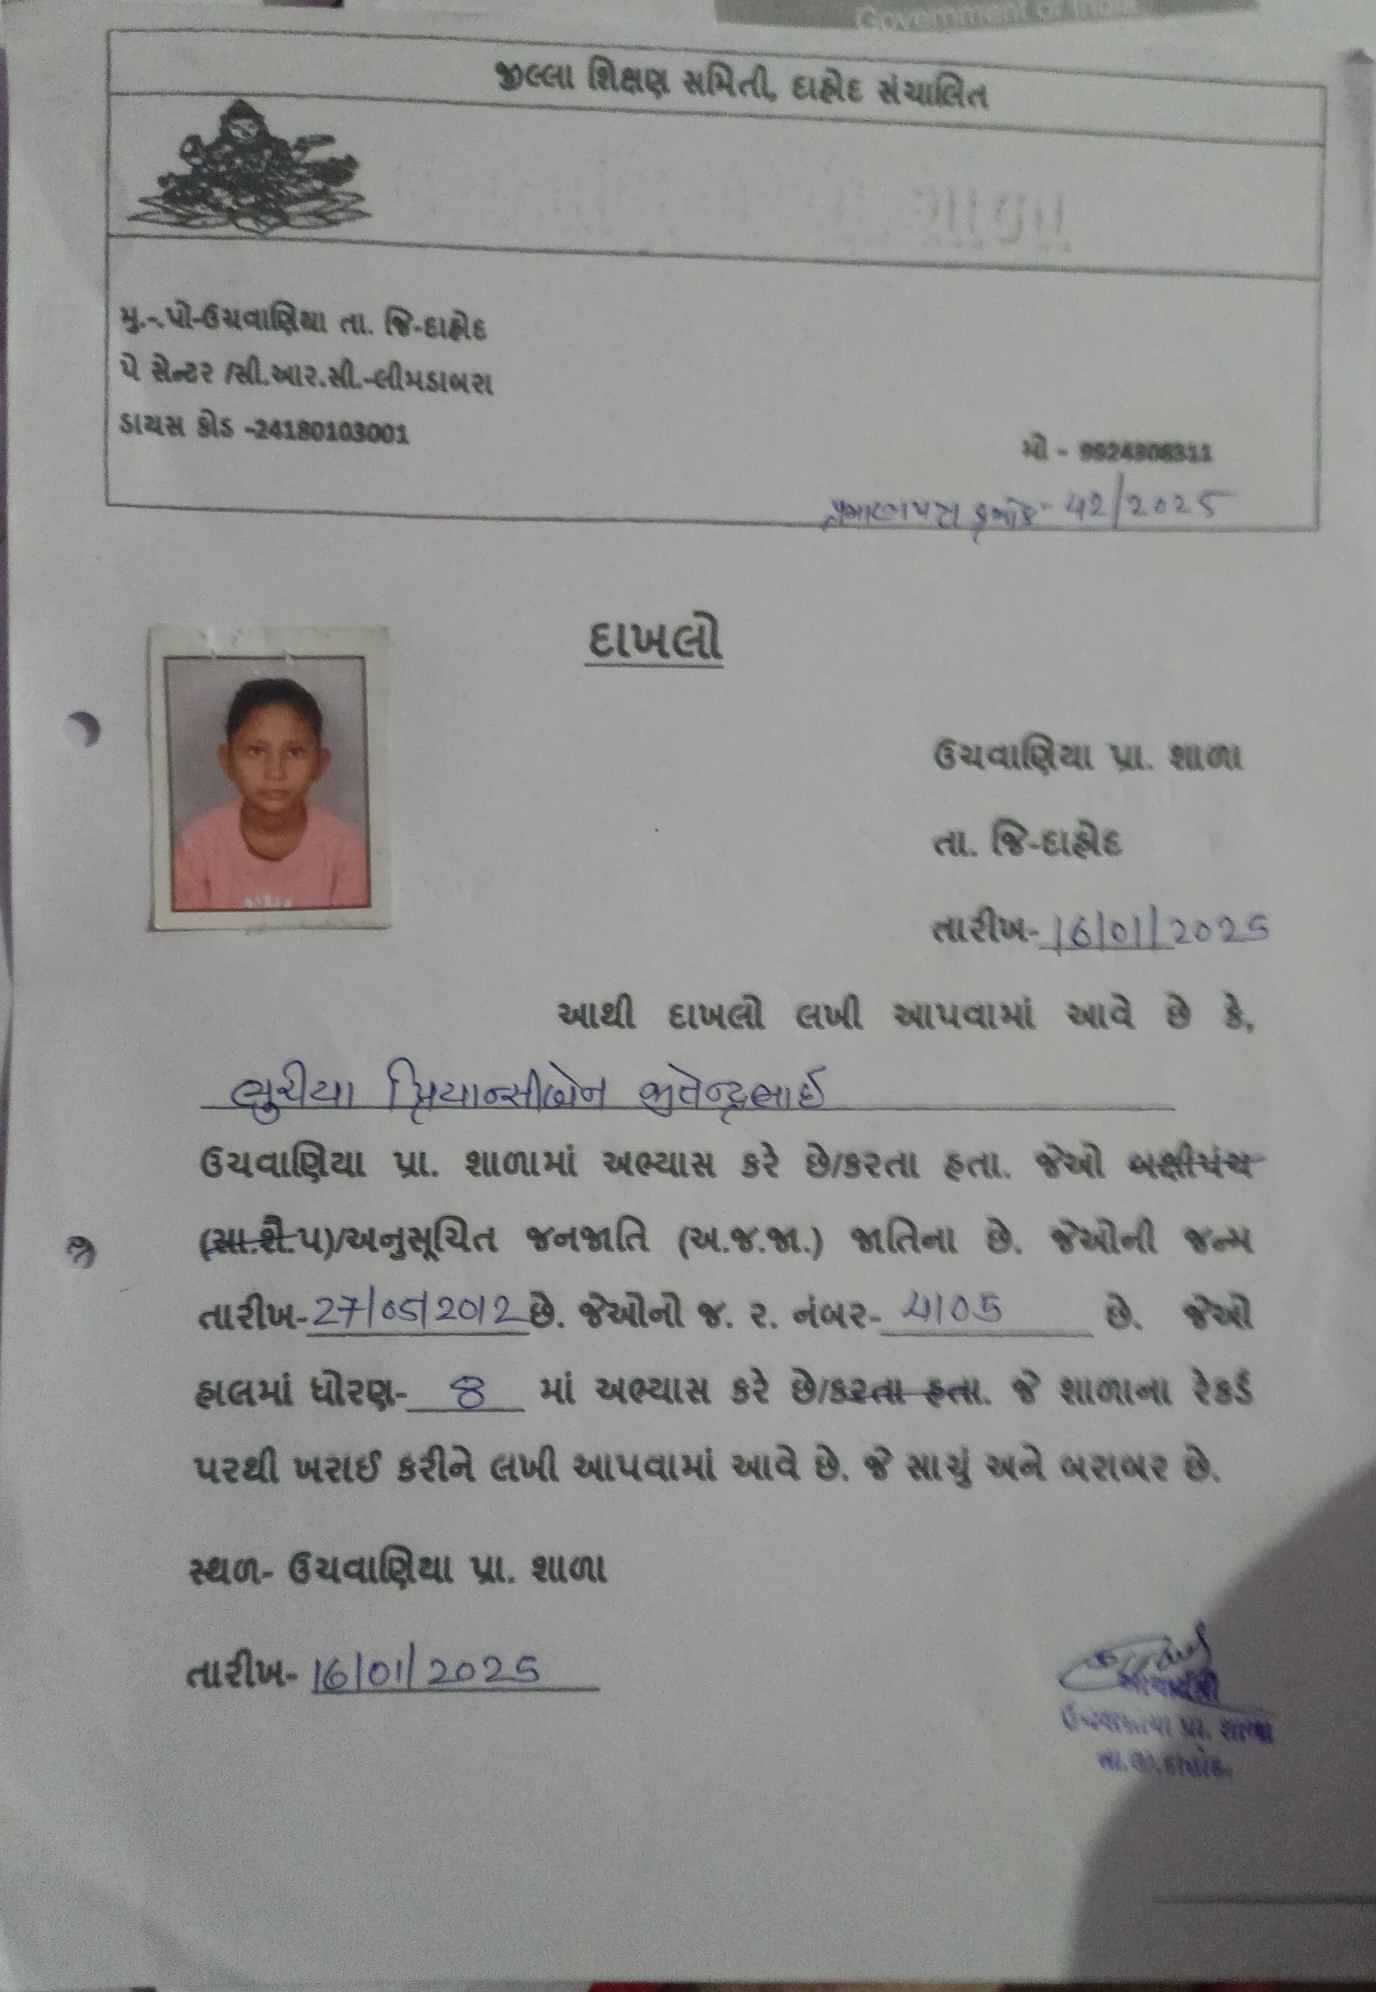 Government of India
જીલ્લા શિક્ષણ સમિતી, દાહોદ સંચાલિત
શાળા
મુ.-.પો-ઉચવાણિયા તા. જિ-દાહોદ
પે સેન્ટર /સી.આર.સી.-લીમડાબરા
ડાયસ કોડ -24180103001
મો - 9924306311
પ્રમાણપત્ર ક્રમાંક- 42/2025
દાખલો
ઉચવાણિયા પ્રા. શાળા
તા. જિ-દાહોદ
તારીખ-16/01/2025
આથી દાખલો લખી આપવામાં આવે છે કે,
ભુરીયા પ્રિયાન્સીબેન જીતેન્દ્રભાઈ
ઉચવાણિયા પ્રા. શાળામાં અભ્યાસ કરે છે/કરતા હતા. જેઓ બક્ષીપંચ
(સા.શૈ.પ)/અનુસૂચિત જનજાતિ (અ.જ.જા.) જાતિના છે. જેઓની જન્મ
તારીખ-27/05/2012 છે. જેઓનો જ. ર. નંબર- 4105 છે. જેઓ
હાલમાં ધોરણ- 8 માં અભ્યાસ કરે છે/કરતા હતા. જે શાળાના રેકર્ડ
પરથી ખરાઈ કરીને લખી આપવામાં આવે છે. જે સાચું અને બરાબર છે.
સ્થળ- ઉચવાણિયા પ્રા. શાળા
તારીખ- 16/01/2025
આચાર્યશ્રી
ઉચવાણીયા પ્રા. શાળા
તા.જી.દાહોદ.